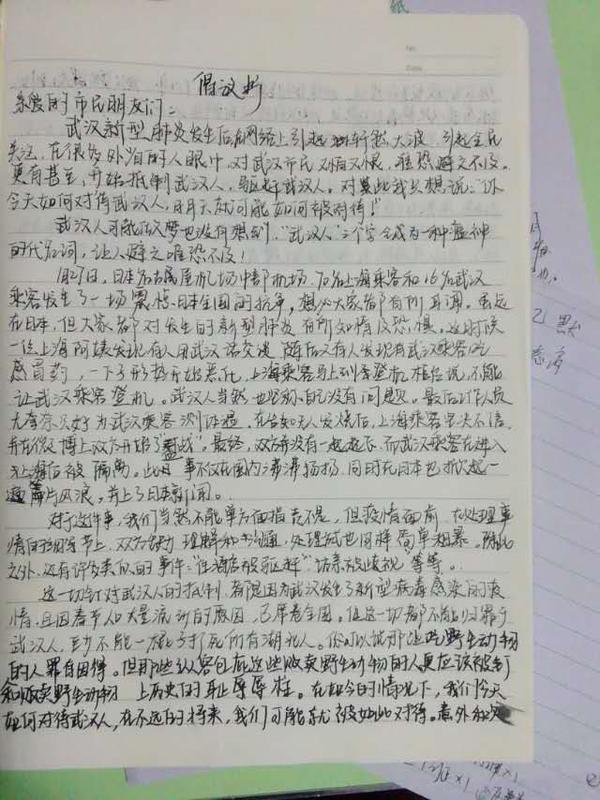 倡议书
亲爱的市民朋友们：
武汉新型肺炎发生后后在网络上引起轩然大波，引起全民
关注，在很多外省的人眼中，对武汉市民又怕又恨，唯恐避之不及。
更有甚至，开始抵制武汉人，驱赶武汉人。对此我只想说："你
今天如何对待武汉人，明天就可能如何被对待！"
武汉人可能做梦也没有想到，"武汉人"三个字会成为一种瘟神
的代名词，让人避之唯恐不及！
1月27日，日本名古屋机场中部机场，70名上海乘客和16名武汉
乘客发生了一场震惊日本全国的抗争，想必大家都有所耳闻。虽远
在日本，但大家都对发生的新型肺炎有所知情及恐惧。这时候
一位上海阿姨发现有人用武汉话交谈，随后又有人发现有武汉乘客吃
感冒药，一下子形势开始恶化，上海乘客马上到登机柜台说，不能
让武汉乘客登机。武汉人当然也坚称自己没有问题。最后工作人员
无奈只好为武汉乘客测体温，在告知无人发烧后，上海乘客坚决不信，
并在微博上双方开始了"骂战"。最终，双方并没有一起起飞，而武汉乘客在进入
上海后被隔离。此事不仅在国内沸沸扬扬，同时在日本也掀起一
片风浪，并上了日本新闻。
对于这件事，我们当然不能单方面指责不是，但疫情面前，在处理事
情的细节上，双方缺少理解和沟通，处理方式也同样简单粗暴。除此
之外，还有许多类似的事件："住酒店被驱赶""访亲被歧视"等等。
这一切针对武汉人的抵制，都是因为武汉发生了新型病毒感染的疫
情，且因春节人口大量流动的原因，已席卷全国。但这一切都不能归罪于
武汉人，至少不能一棍子打死所有湖北人。你可以说那些吃野生动物
的人罪自因得。但那些纵容包庇这些贩卖野生动物的人更应该被钉
和贩卖野生动物 上历史的耻辱柱。在如今的情况下，我们今天
如何对待武汉人，在不远的将来，我们可能就被如此对待。意外和灾